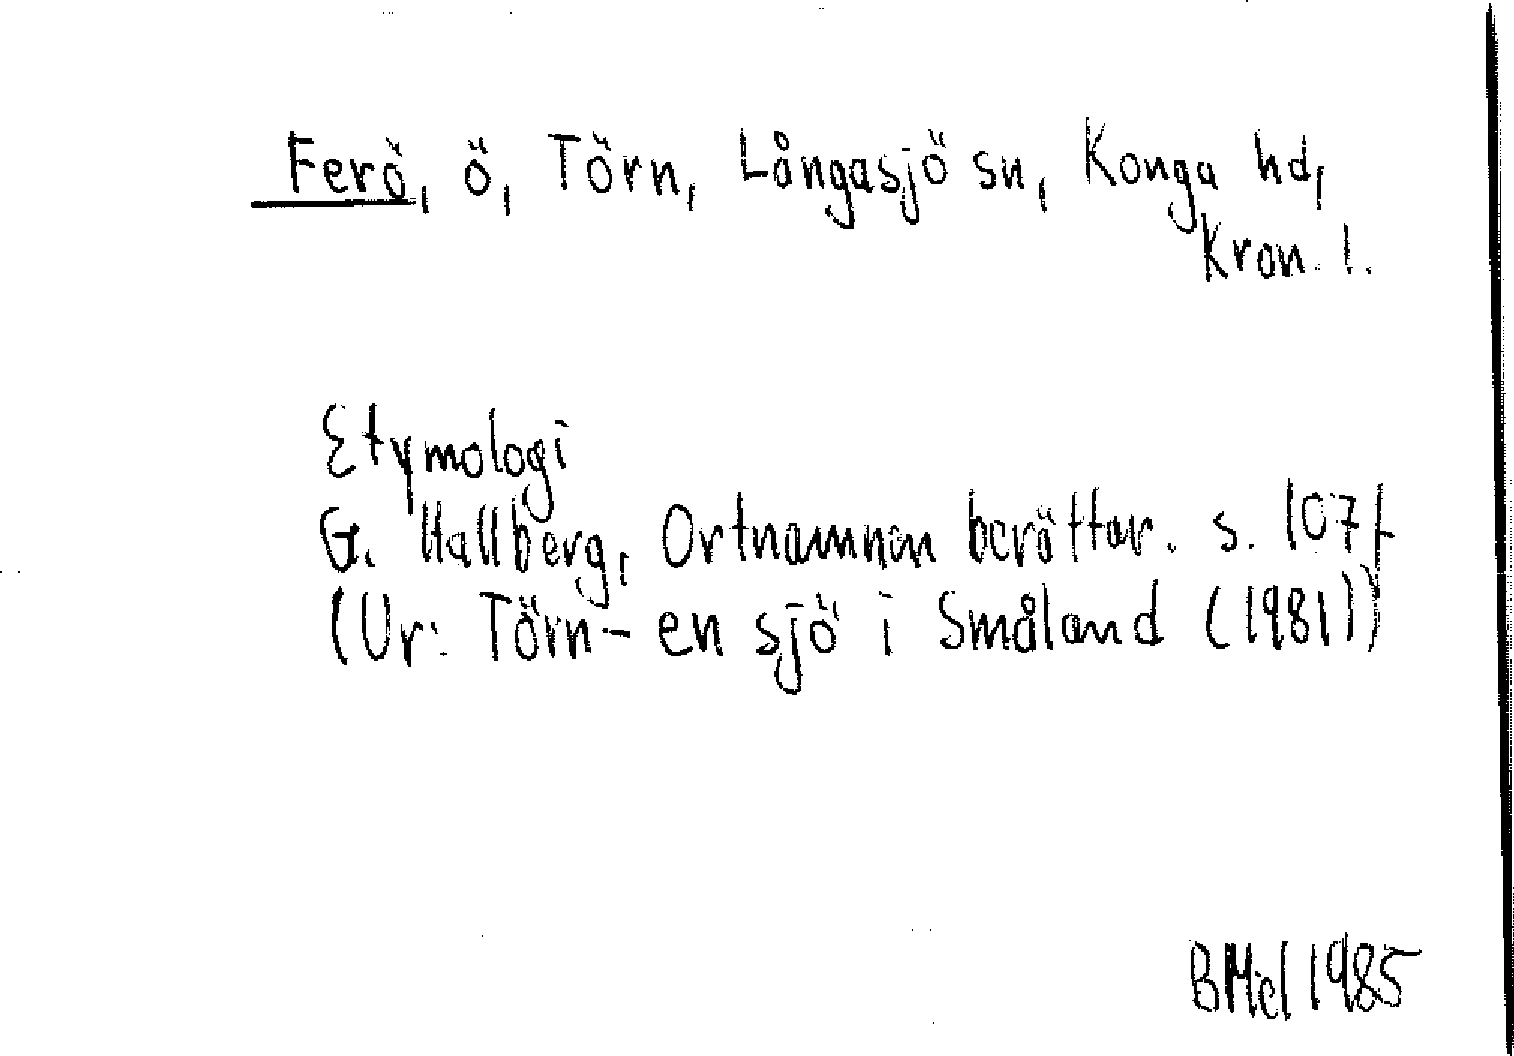 Ferö, ö, Törn, Långasjö sn, Konga hd,
Kron. l.
Etymologi
G. Hallberg, Ortnamnen berättar. s. 107f
(Ur: Törn - en sjö i Småland (1981))
BMel 1985